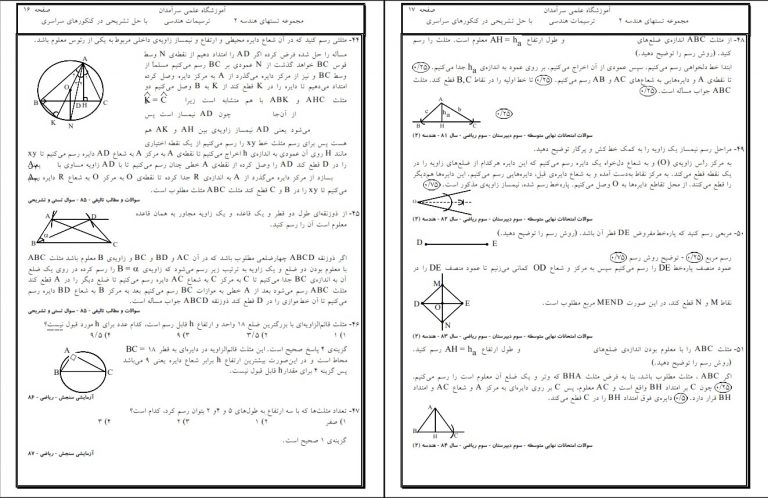 آموزشگاه علمی سرآمدان
صفحه ۱۷
مجموعه تستهای هندسه ۲ ترسیمات هندسی با حل تشریحی در کنکورهای سراسری
۴۸- از مثلث ABC اندازه‌ی ضلع‌های و طول ارتفاع AH = ha معلوم است. مثلث را رسم
کنید. (روش رسم را توضیح دهید.)
ابتدا خط دلخواهی رسم می‌کنیم. سپس عمودی از آن اخراج می‌کنیم. بر روی عمود به اندازه‌ی ha جدا می‌کنیم. (۰/۲۵)
تا نقطه‌ی A و دایره‌هایی به شعاع‌های AC و AB رسم می‌کنیم. (۰/۲۵) تا خط اولیه را در نقاط B,C قطع کند. مثلث
ABC جواب مساله است. (۰/۲۵)
(۰/۲۵)
A
b
c
ha
B
H
C
سوالات امتحانات نهایی متوسطه - سوم دبیرستان - سوم ریاضی - سال ۸۱ - هندسه (۲)
۴۹- مراحل رسم نیمساز یک زاویه را به کمک خط کش و پرگار توضیح دهید.
به مرکز راس زاویه‌ی (O) و به شعاع دلخواه یک دایره رسم می‌کنیم که این دایره هرکدام از ضلع‌های زاویه را در
یک نقطه قطع می‌کند. به مرکز نقاط به‌دست آمده و به شعاع دایره‌ی قبل، دایره‌هایی رسم می‌کنیم. این دایره‌ها هم‌دیگر
را قطع می‌کنند. از محل تقاطع دایره‌ها به O وصل می‌کنیم. پاره‌خط رسم شده، نیمساز زاویه‌ی مذکور است. (۰/۷۵)
O
سوالات امتحانات نهایی متوسطه - سوم دبیرستان - سوم ریاضی - سال ۸۲ - هندسه (۲)
۵۰- مربعی رسم کنید که پاره‌خط مفروض DE قطر آن باشد. (روش رسم را توضیح دهید.)
D E
رسم مربع (۰/۲۵) - توضیح روش رسم (۰/۷۵)
عمود منصف پاره‌خط DE را رسم می‌کنیم سپس به مرکز و شعاع OD کمانی می‌زنیم تا عمود منصف DE را در
نقاط M و N قطع کند، در این صورت MEND مربع مطلوب است.
M
D O E
N
سوالات امتحانات نهایی متوسطه - سوم دبیرستان - سوم ریاضی - سال ۸۳ - هندسه (۲)
۵۱- مثلث ABC را با معلوم بودن اندازه‌ی ضلع‌های و طول ارتفاع AH = ha رسم کنید.
(روش رسم را توضیح دهید.)
اگر ABC ، مثلث مطلوب باشد، بنا به فرض مثلث BHA که وتر و یک ضلع آن معلوم است را رسم می‌کنیم.
(۰/۲۵) چون C بر امتداد BH واقع است و AC معلوم. پس C بر روی دایره‌ای به مرکز A و شعاع AC و امتداد
BH قرار دارد. (۰/۵) دایره‌ی فوق امتداد BH را در C قطع می‌کند.
A
B H C
سوالات امتحانات نهایی متوسطه - سوم دبیرستان - سوم ریاضی - سال ۸۴ - هندسه (۲)
آموزشگاه علمی سرآمدان
صفحه ۱۶
مجموعه تستهای هندسه ۲ ترسیمات هندسی با حل تشریحی در کنکورهای سراسری
۴۴- مثلثی رسم کنید که در آن شعاع دایره محیطی و ارتفاع و نیمساز زاویه‌ی داخلی مربوط به یکی از رئوس معلوم باشد.
مساله را حل شده فرض کرده اگر AD را امتداد دهیم از نقطه‌ی N وسط
قوس BC خواهد گذشت از N عمودی بر BC رسم می‌کنیم مسلماً از
وسط BC و نیز از مرکز دایره می‌گذرد از A به مرکز دایره وصل کرده
امتداد می‌دهیم تا دایره را در K قطع کند از K به B وصل می‌کنیم دو
مثلث AHC و ABK با هم متشابه است زیرا K̂ = Ĉ
از آن‌جا چون AD نیمساز است پس
می‌شود یعنی AD نیمساز زاویه‌ی بین AH و AK هم
هست پس برای رسم مثلث خط xy را رسم می‌کنیم از یک نقطه اختیاری
مانند H روی آن عمودی به اندازه‌ی h اخراج می‌کنیم تا نقطه‌ی A به مرکز A به شعاع AD دایره رسم می‌کنیم تا xy
را در D قطع کند AD را وصل کرده از نقطه‌ی A خطی چنان رسم می‌کنیم تا با AD زاویه مساوی با
بسازد از مرکز دایره می‌گذرد از A به اندازه‌ی R جدا کرده تا نقطه‌ی O به مرکز O به شعاع R دایره
می‌کنیم تا xy را در B و C قطع کند مثلث ABC مثلث مطلوب است.
سوالات و مطالب تالیفی - ۸۵ - سوال تستی و تشریحی
۴۵- از ذوزنقه‌ای طول دو قطر و یک قاعده و یک زاویه مجاور به همان قاعده
معلوم است آن را رسم کنید.
A D
B C
اگر ذوزنقه ABCD چهارضلعی مطلوب باشد که در آن AC و BD و BC و زاویه‌ی B معلوم باشد مثلث ABC
با معلوم بودن دو ضلع و یک زاویه به ترتیب زیر رسم می‌شود که زاویه‌ی B = α را رسم کرده در روی یک ضلع
آن به اندازه‌ی BC جدا می‌کنیم تا C به مرکز C به شعاع AC دایره رسم می‌کنیم تا ضلع دیگر را در A قطع کند
مثلث ABC رسم می‌شود بعد از A خطی به موازات BC رسم می‌کنیم بعد به مرکز B به شعاع BD دایره رسم
می‌کنیم تا آن خط موازی را در D قطع کند ذوزنقه ABCD جواب مساله است.
سوالات و مطالب تالیفی - ۸۵ - سوال تستی و تشریحی
۴۶- مثلث قائم‌الزاویه‌ای با بزرگترین ضلع ۱۸ واحد و ارتفاع h قابل رسم است، کدام عدد برای h مورد قبول نیست؟
۱) ۱ ۲) ۳/۵ ۳) ۹ ۴) ۹/۵
گزینه‌ی ۴ پاسخ صحیح است. این مثلث قائم‌الزاویه در دایره‌ای به قطر BC = ۱۸
محاط است و در این‌صورت بیشترین ارتفاع h برابر شعاع دایره یعنی ۹ می‌باشد
پس گزینه ۴ برای مقدار h قابل قبول نیست.
آزمایشی سنجش - ریاضی - ۸۶
۴۷- تعداد مثلث‌ها که با سه ارتفاع به طول‌های ۵ و ۴و ۲ بتوان رسم کرد، کدام است؟
۱) صفر ۲) ۱ ۳) ۲ ۴) ۳
گزینه‌ی ۱ صحیح است.
آزمایشی سنجش - ریاضی - ۸۷